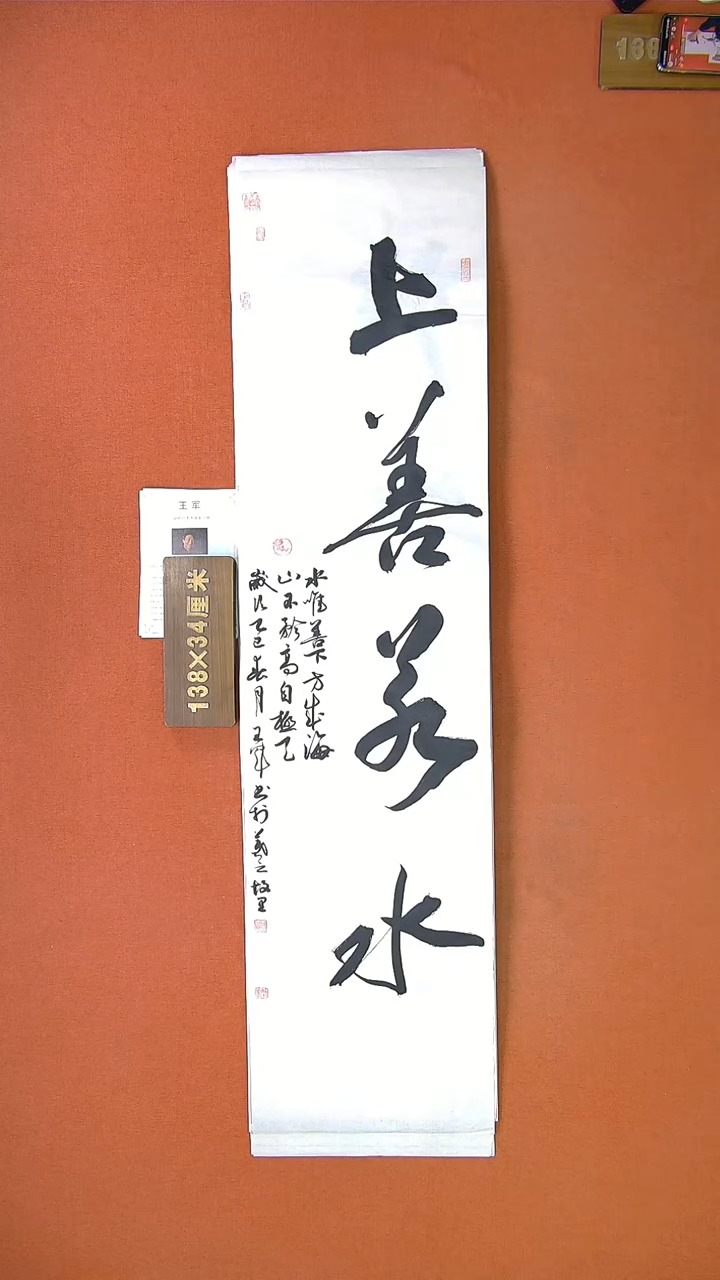 上善若水
水唯善下方成海
山不矜高自极天
岁次乙巳春月王军书于羲之故里
王军
138×34厘米
138